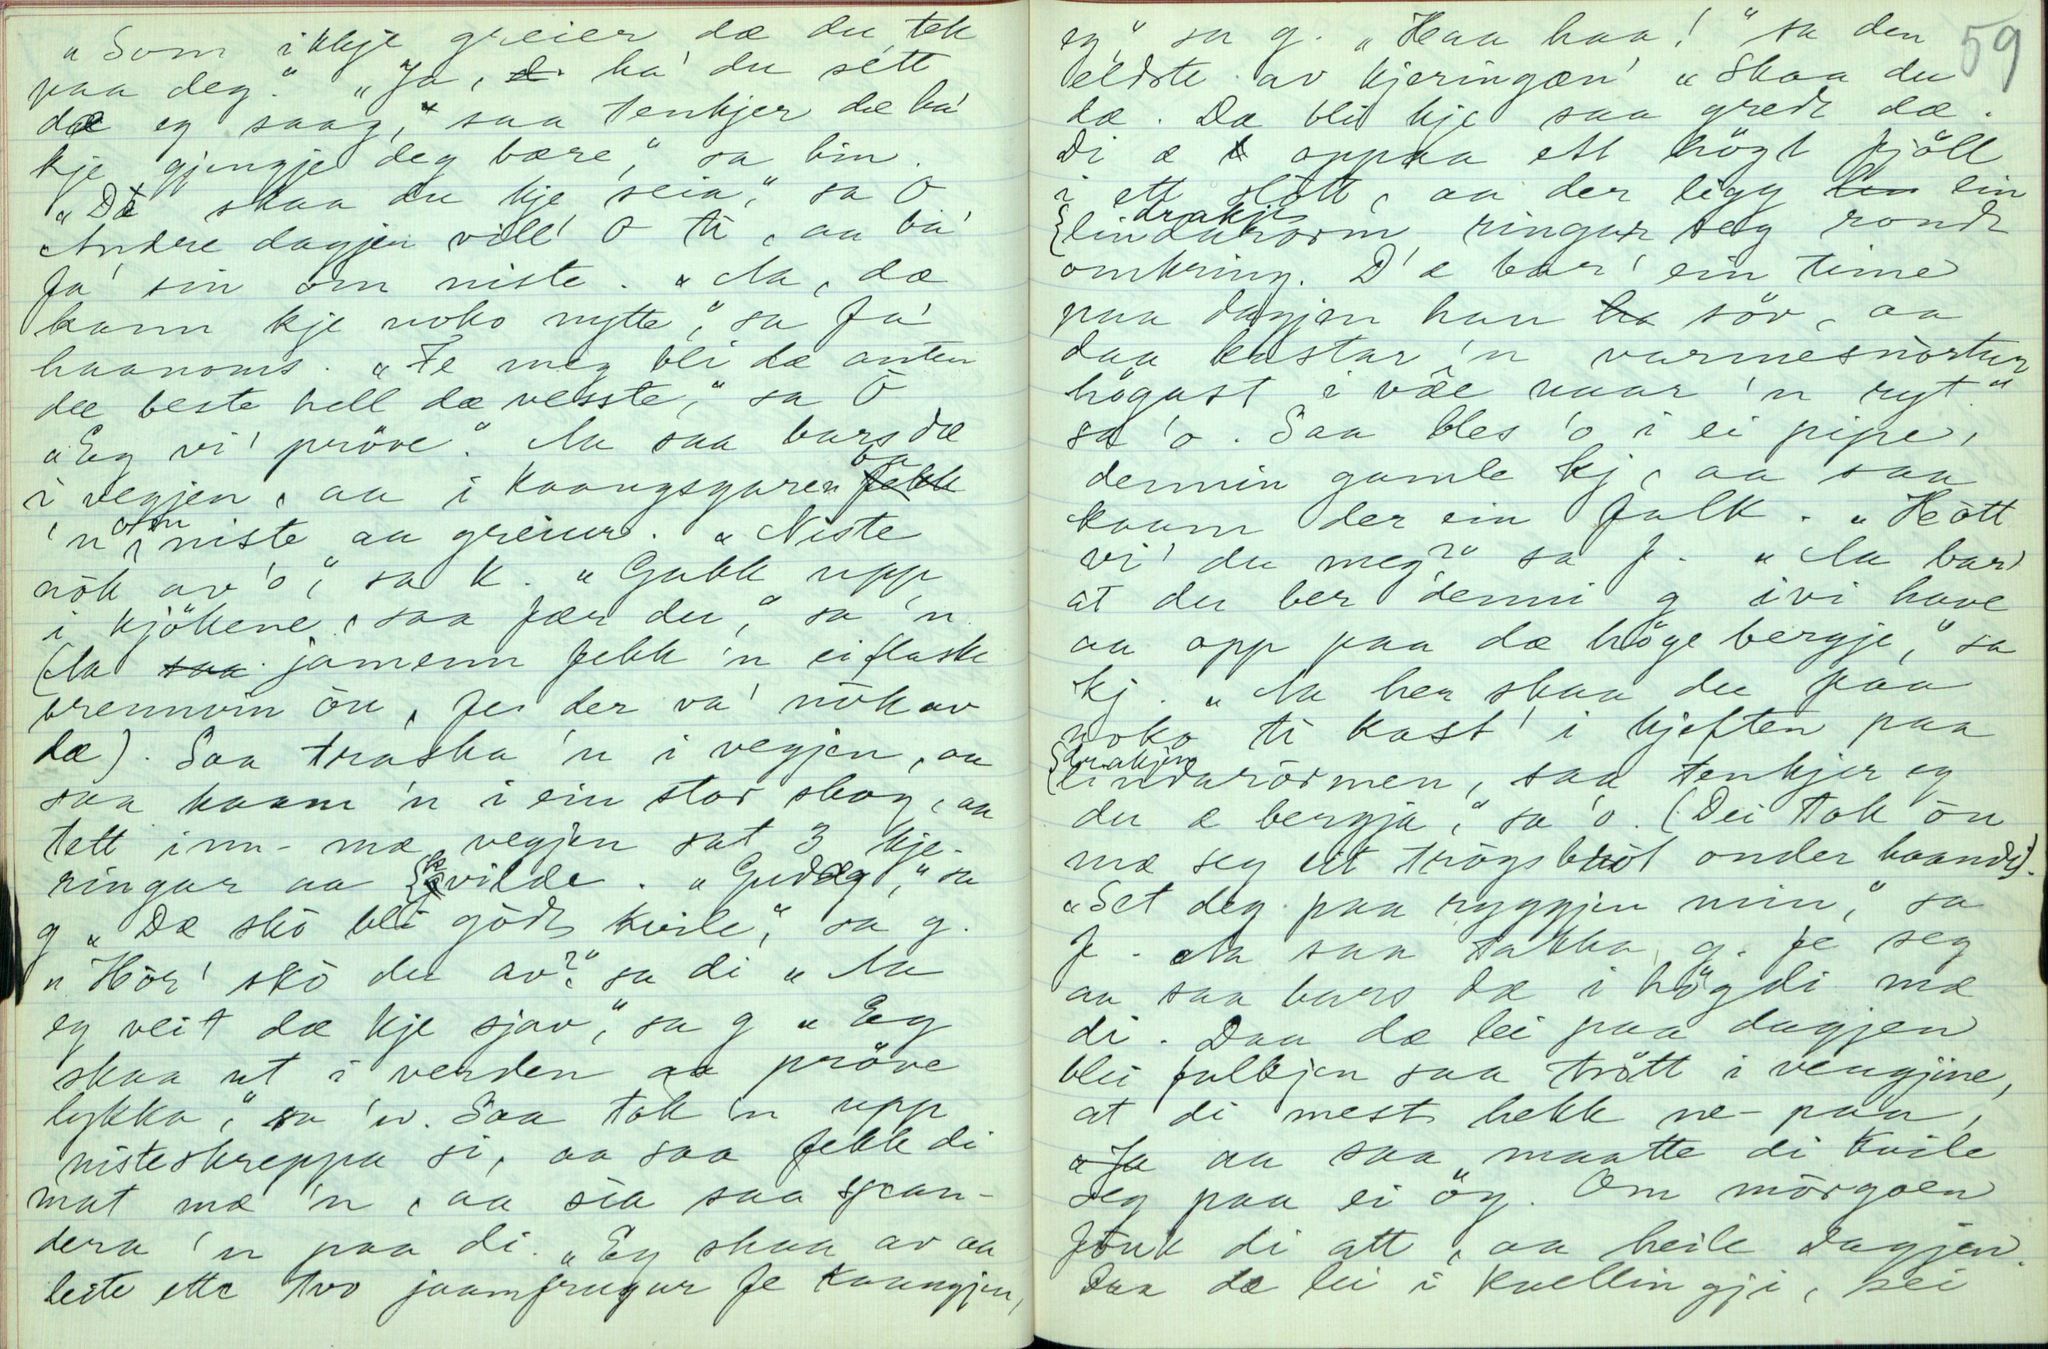 „Som ikkje greier dæ du tek
paa deg." „Ja, ha' du sétt
dæ eg saag," saa tenkjer dæ ha'
kje gjengje deg bære," sa hin.
„Dæ skaa du kje seia," sa O
Andre dagjen vill' O ti, aa ba'
fa' sin om niste. „Aa, dæ
kann kje noko nytte," sa fa'
haanoms. „Fe meg bli dæ anten
dæ beste hell dæ vesste," sa O
„Eg vi' pröve." Aa saa bars dæ
i vegjen, aa i kaangsgaren ba
'n om niste aa greiur. „Niste
nök av 'o," sa K. „Gakk upp
i kjökene, saa fær du," sa 'n
(Aa jamenn fekk 'n ei flaske
brennvin òu, fe der va' nòk av
dæ). Saa traska 'n i vegjen, aa
saa kaam 'n i ein stor skog, aa
tett inn-mæ vegjen sat 3 kje-
ringar aa kvilde. „Gudag," sa
g „Dæ skò bli gòdt kvile," sa g.
„Hòr' skò du av?" sa di „Aa
eg veit dæ kje sjav," sa g „Eg
skaa ut i verden aa pröve
lykka," sa 'n. Saa tok 'n upp
nisteskreppa si, aa saa fekk di
mat mæ 'n, aa sia saa span-
dera 'n paa di. „Eg skaa av aa
leite ette tvo jaamfrugur fe kaangjen,
59
eg," sa g. „Haa haa!" sa den
eldste av kjeringæn' „Skaa du
dæ. Dæ bli kje saa gredt dæ.
Di æ oppaa ett högt fjöll
i ett slòtt, aa der ligg ein
drakje
{lindarorm ringar seg rondt
omkring. D'æ bar' ein time
paa dagjen han söv, aa
daa kastar 'n varmesnòrtur
högast i væe naar 'n ryt."
sa 'o. Saa bles 'o i ei pipe,
dennin gamle kj, aa saa
kaam der ein falk. „Hòtt
vi' du meg?" sa f. „Aa bar'
at du ber denni g ivi have
aa opp paa dæ höge bergje," sa
kj. „Aa her skaa du faa
noko ti kast' i kjeften paa
drakjen
{lindarormen, saa tenkjer eg
du æ bergja," sa 'o. (Dei tok òu
mæ seg eit trogsbröt onder haandi).
„Set deg paa ryggjen min," sa
f. Aa saa takka g. fe seg
aa saa bars dæ i högdi mæ
di. Daa dæ lei paa dagjen
blei falkjen saa trött i vengjine,
at di mest hekk ne-paa,
aa saa maatte di kvile
seg paa ei öy. Om mòrgoen
fouk di att, aa heile dagjen.
Daa dæ lei i kvellingji, sei